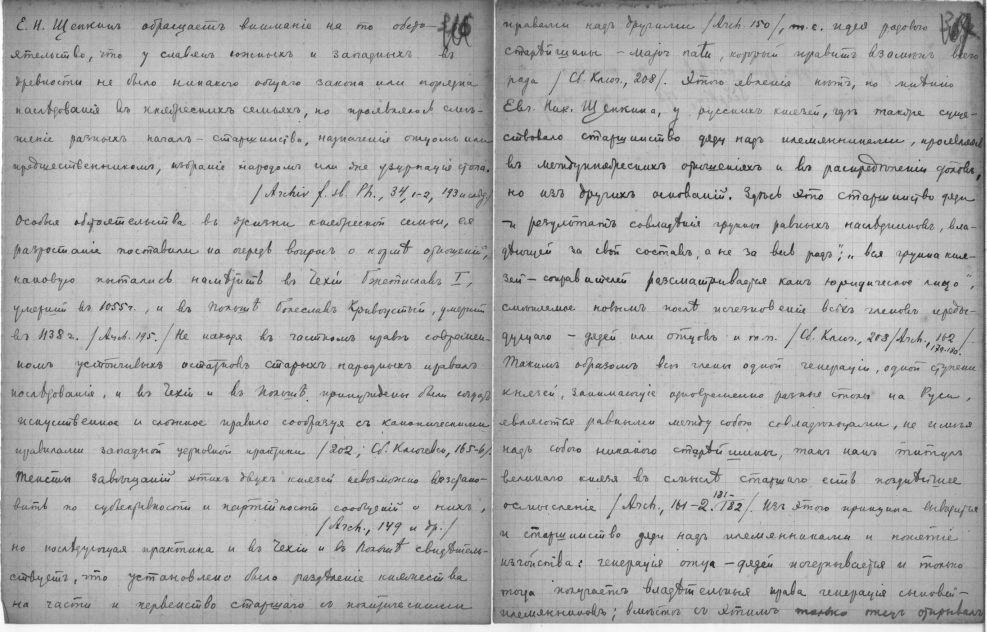 316
Е. Н. Щепкинъ обращаетъ вниманіе на то обсто-
ятельство, что у славян южныхъ и западныхъ въ
древности не было никакого общаго закона или порядка
наслѣдованія въ княжескихъ семьяхъ, но проявлялось смѣ-
шеніе разныхъ началъ – старшинство, назначеніе отцомъ или
предшественникомъ, избраніе народомъ или же узурпація стола.
/Archiv f. sl. Ph., 34, 1-2, 193 и слѣд/
Особыя обстоятельства въ жизни княжеской семьи, ея
разростаніе поставили на очередь вопросъ о нормѣ отношеній,
каковую пытались намѣтить въ Чехіи Бжетиславъ I,
умершій въ 1055 г., и въ Польшѣ Болеславъ Кривоустый, умершій
въ 1138 г. /Arch. 195./ Не находя въ частномъ правѣ современ-
номъ устойчивыхъ остатковъ старыхъ народныхъ правилъ
наслѣдованія, и въ Чехіи и въ Польшѣ принуждены были создать
искуственное и сложное правило сообразуя съ каноническими
правилами западной церковной практики /202; Сб. Ключевск, 165-6/.
Тексты завѣщаній этихъ двухъ князей невозможно возстано-
вить по субъективности и партійности сообщеній о нихъ,
/Arch., 149 и др./
но послѣдующая практика и въ Чехіи и въ Польшѣ свидѣтель-
ствуетъ, что установлено было раздѣленіе княжества
на части и первенство старшаго съ политическими
правами надъ другими /Arch 150/, т. е. идея родового
старѣйшины – major natu, который правитъ взамѣнъ всего
рода /Сб. Ключ., 208/. Этого явленія нѣтъ, по мнѣнію
Евг. Ник. Щепкина, у русскихъ князей, гдѣ также суще-
ствовало старшинство дяди надъ племянниками, проявляясь
въ междукняжескихъ отношеніяхъ и въ распредѣленіи столовъ,
но изъ другихъ основаній. Здѣсь это старшинство дяди
– результатъ совладѣнія группы равныхъ наслѣдниковъ, вла-
дѣющей за свой составъ, а не за весь родъ; „вся группа кня-
зей – соправителей разсматривается какъ юридическое лицо",
смѣняемое новымъ послѣ исчезновенія всѣхъ членовъ преды-
дущаго – дядей или отцовъ и т. п. /Сб. Ключ., 203/Arch., 162/
179-180.
Такимъ образомъ всѣ члены одной генераціи, одной ступени
князей, занимающіе одновременно разные столы на Руси,
являются равными между собою совладѣльцами, не имѣя
надъ собою никакого старѣйшины, такъ какъ титулъ
великаго князя въ смыслѣ старшаго есть позднѣйшее
осмысленіе /Arch., 161-2. 181-182/. Изъ этого принципа выводится
и старшинство дяди надъ племянниками и понятіе
изгойства: генерація отца – дядей исчерпывается и только
тогда получаетъ владѣтельныя права генерація сыновей –
племянниковъ; вмѣстѣ съ этимъ только отецъ открывалъ